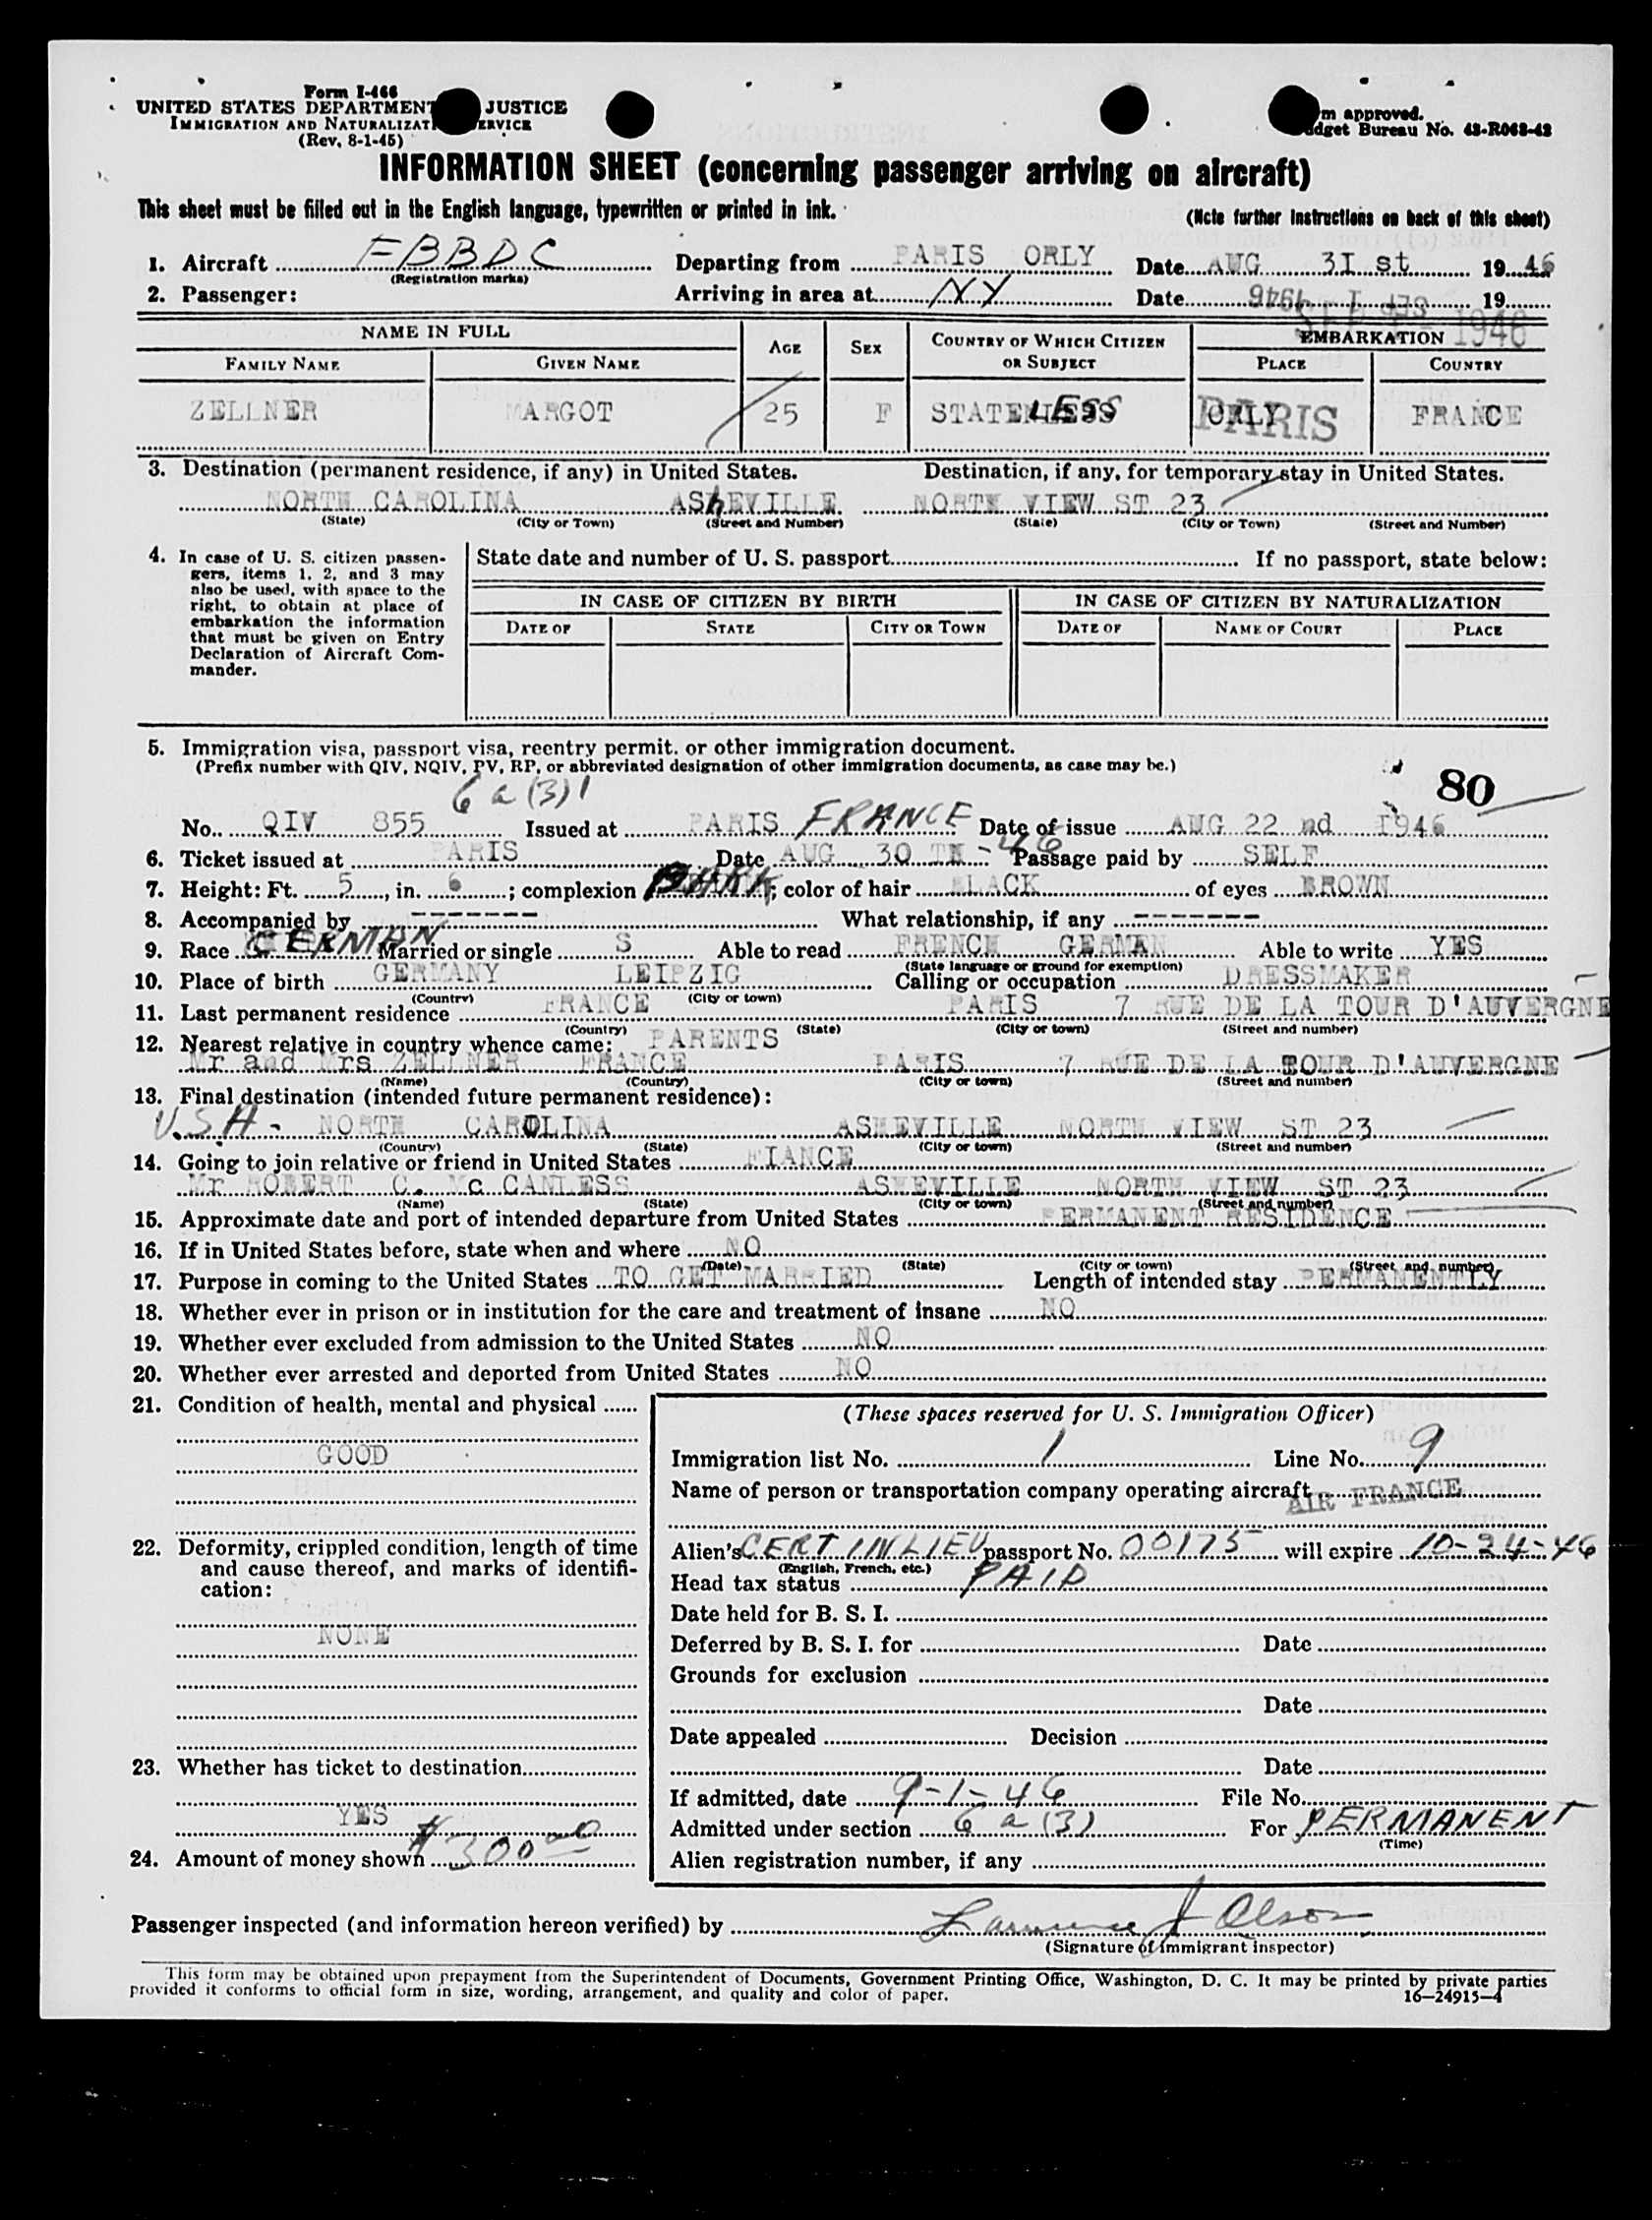 Form I-466
UNITED STATES DEPARTMENT JUSTICE
IMMIGRATION AND NATURALIZATI ERVICE
(Rev. 8-1-45)
m approved.
dget Bureau No. 43-R068-42
INFORMATION SHEET (concerning passenger arriving on aircraft)
This sheet must be filled out in the English language, typewritten or printed in ink.
(Note further instructions on back of this sheet)
1. Aircraft FBBDC Departing from PARIS ORLY Date AUG 3I st 19 46
(Registration marks)
2. Passenger: Arriving in area at NY Date SEP 1 1946 19
1946
NAME IN FULL AGE SEX COUNTRY OF WHICH CITIZEN OR SUBJECT EMBARKATION
FAMILY NAME GIVEN NAME PLACE COUNTRY
ZELLNER MARGOT 25 F STATELESS ORLY PARIS FRANCE
3. Destination (permanent residence, if any) in United States. Destination, if any, for temporary stay in United States.
NORTH CAROLINA AShEVILLE NORTH VIEW ST 23
(State) (City or Town) (Street and Number) (State) (City or Town) (Street and Number)
4. In case of U. S. citizen passen-
gers, items 1, 2, and 3 may
also be used, with space to the
right, to obtain at place of
embarkation the information
that must be given on Entry
Declaration of Aircraft Com-
mander.
State date and number of U. S. passport If no passport, state below:
IN CASE OF CITIZEN BY BIRTH IN CASE OF CITIZEN BY NATURALIZATION
DATE OF STATE CITY OR TOWN DATE OF NAME OF COURT PLACE
5. Immigration visa, passport visa, reentry permit, or other immigration document.
(Prefix number with QIV, NQIV, PV, RP, or abbreviated designation of other immigration documents, as case may be.)
6 a (3) 1
80
No. QIV 855 Issued at PARIS FRANCE Date of issue AUG 22 nd I946
6. Ticket issued at PARIS Date AUG 30 TH - 46 Passage paid by SELF
7. Height: Ft. 5, in. 6; complexion DARK; color of hair BLACK of eyes BROWN
8. Accompanied by ------- What relationship, if any -------
9. Race GERMAN Married or single S Able to read FRENCH GERMAN Able to write YES
(State language or ground for exemption)
10. Place of birth GERMANY LEIPZIG Calling or occupation DRESSMAKER
(Country) (City or town)
11. Last permanent residence FRANCE PARIS 7 RUE DE LA TOUR D'AUVERGNE
(Country) (State) (City or town) (Street and number)
12. Nearest relative in country whence came: PARENTS
Mr and Mrs ZELLNER FRANCE PARIS 7 RUE DE LA TOUR D'AUVERGNE
(Name) (Country) (City or town) (Street and number)
13. Final destination (intended future permanent residence):
U.S.A- NORTH CAROLINA ASHEVILLE NORTH VIEW ST 23
(Country) (State) (City or town) (Street and number)
14. Going to join relative or friend in United States FIANCE
Mr ROBERT C. Mc CANLESS ASHEVILLE NORTH VIEW ST 23
(Name) (State) (City or town) (Street and number)
15. Approximate date and port of intended departure from United States PERMANENT RESIDENCE
16. If in United States before, state when and where NO
(Date) (State) (City or town) (Street and number)
17. Purpose in coming to the United States TO GET MARRIED Length of intended stay PERMANENTLY
18. Whether ever in prison or in institution for the care and treatment of insane NO
19. Whether ever excluded from admission to the United States NO
20. Whether ever arrested and deported from United States NO
21. Condition of health, mental and physical
GOOD
22. Deformity, crippled condition, length of time
and cause thereof, and marks of identifi-
cation:
NONE
23. Whether has ticket to destination
YES
24. Amount of money shown $300.00
(These spaces reserved for U. S. Immigration Officer)
Immigration list No. 1 Line No. 9
Name of person or transportation company operating aircraft AIR FRANCE
Alien's CERT IN LIEU passport No. 00175 will expire 10-24-46
(English, French, etc.)
Head tax status PAID
Date held for B. S. I.
Deferred by B. S. I. for Date
Grounds for exclusion
Date
Date appealed Decision
Date
If admitted, date 9-1-46 File No.
Admitted under section 6 a (3) For PERMANENT
(Time)
Alien registration number, if any
Passenger inspected (and information hereon verified) by Lawrence J Olson
(Signature of immigrant inspector)
This form may be obtained upon prepayment from the Superintendent of Documents, Government Printing Office, Washington, D. C. It may be printed by private parties
provided it conforms to official form in size, wording, arrangement, and quality and color of paper.
16—24915-4